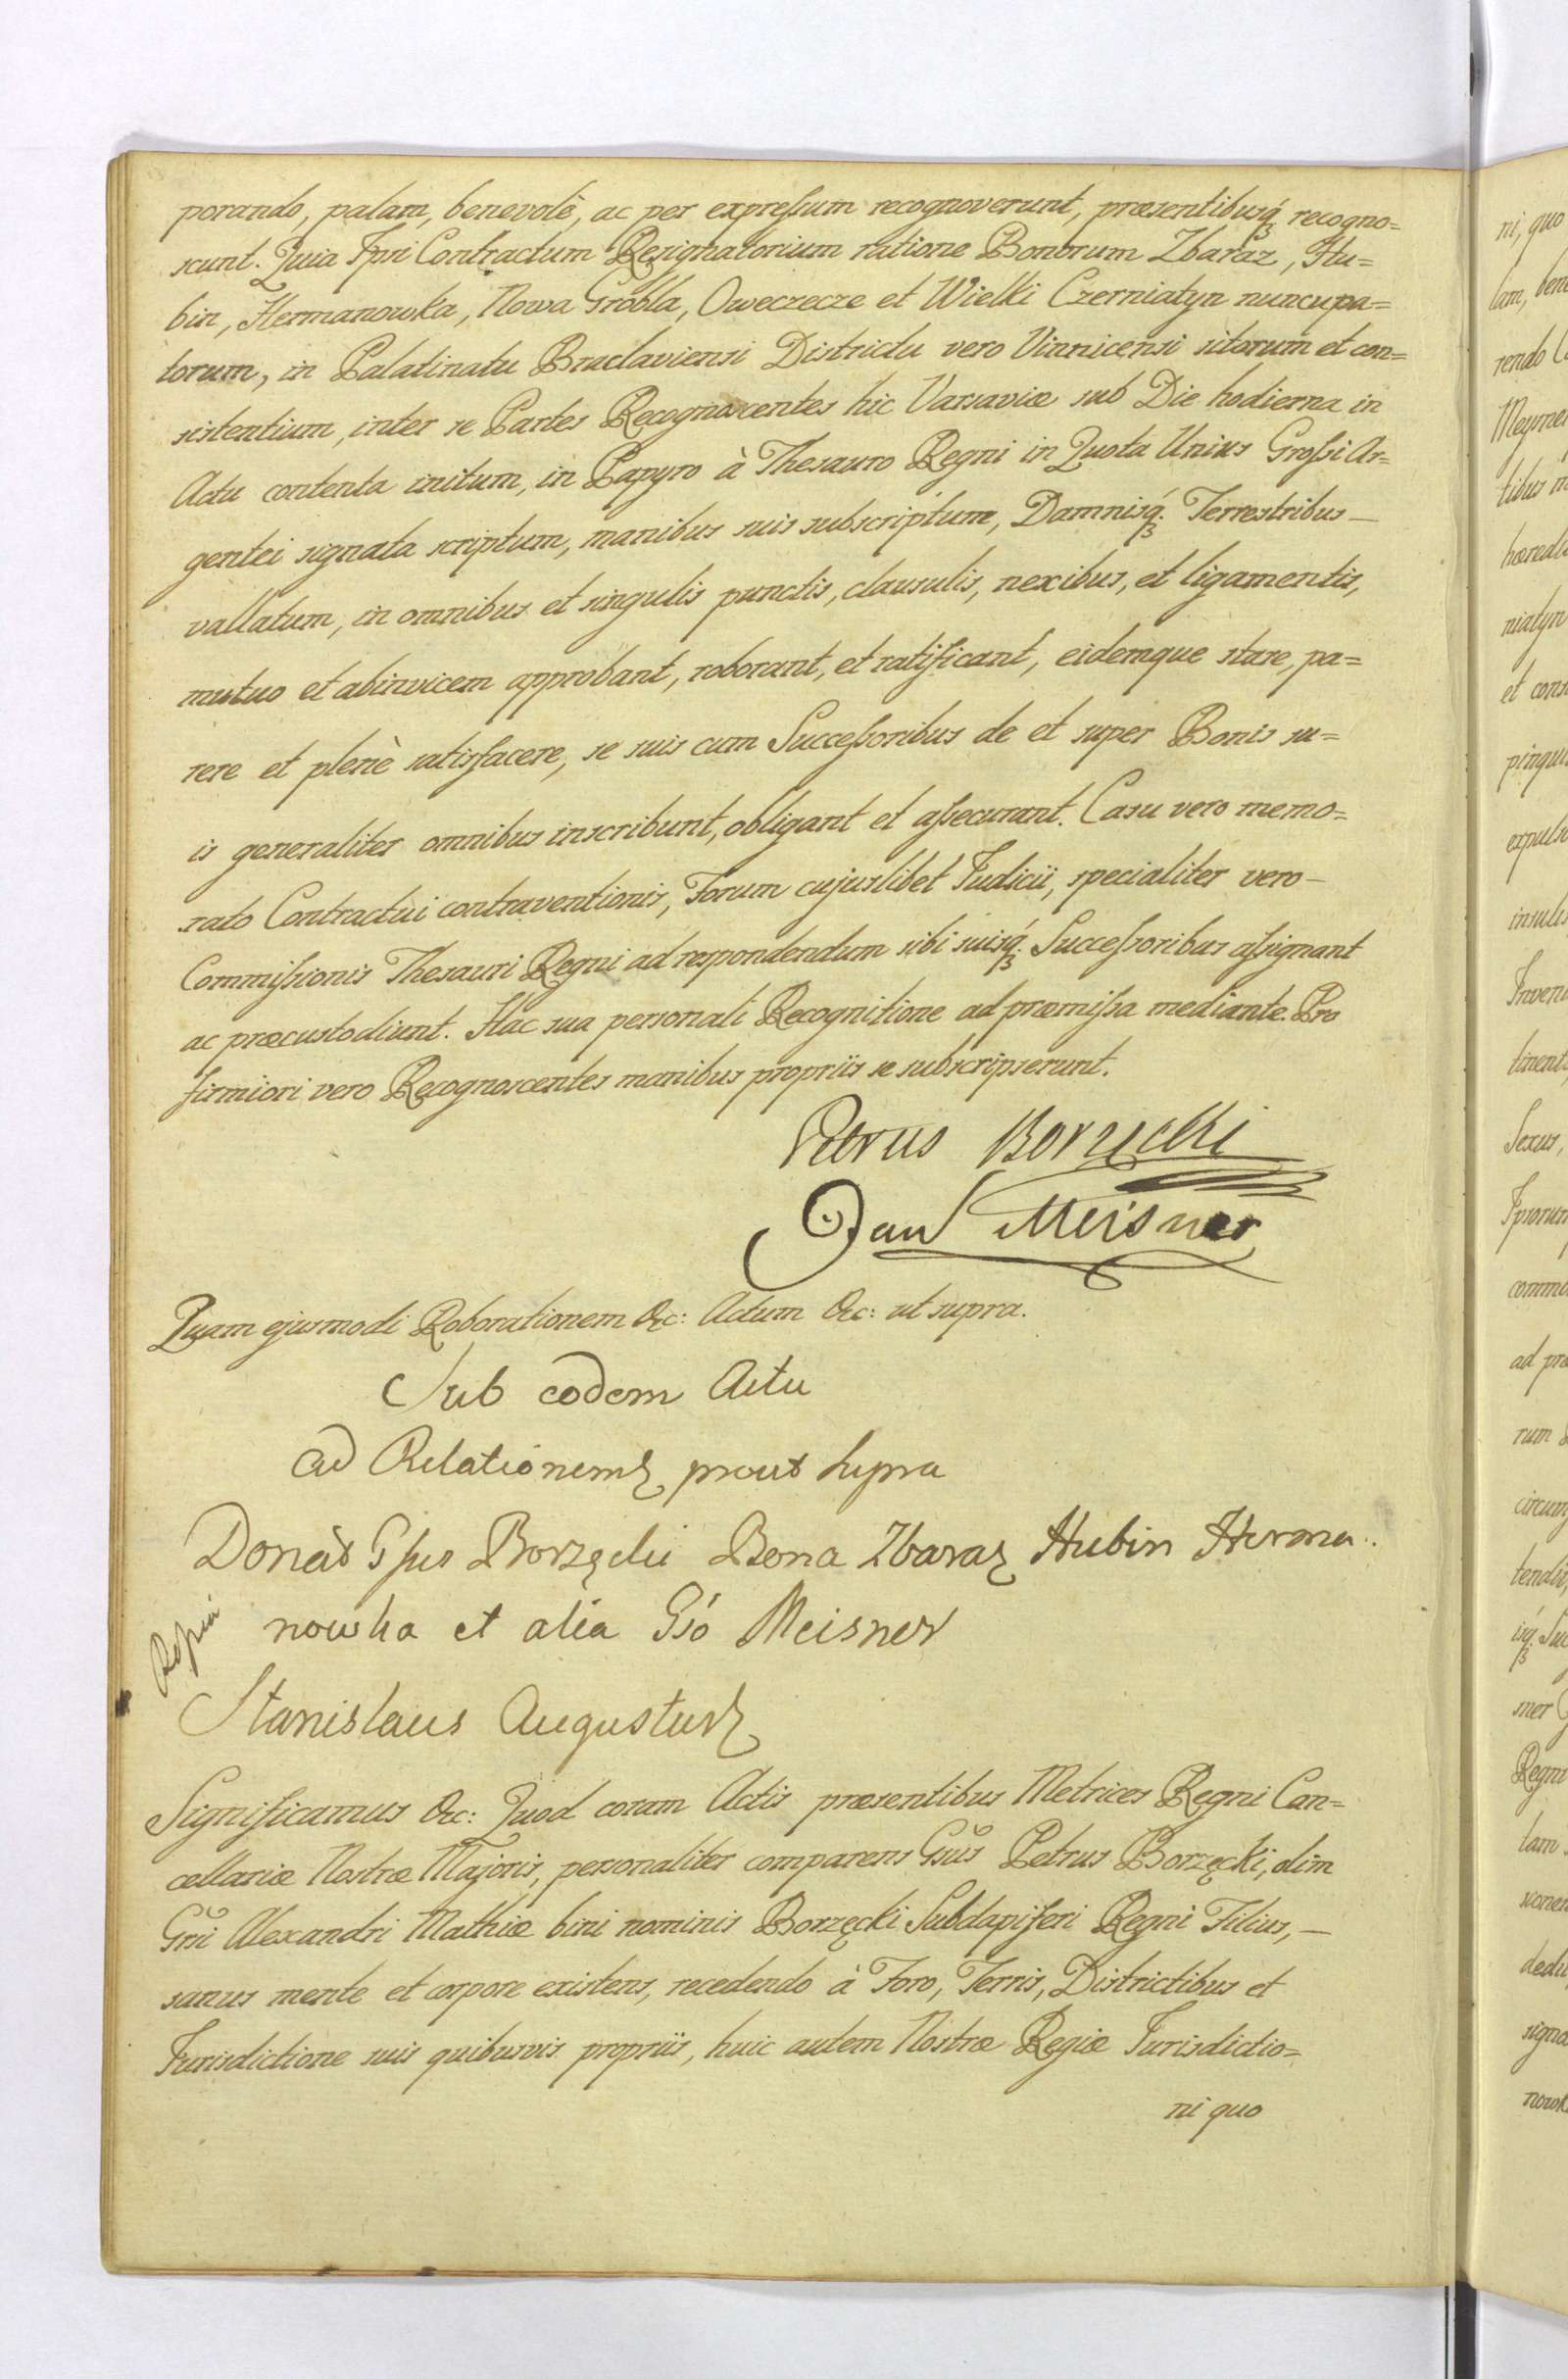 porando, palam, benevolè, ac per expressum recognoverunt, præsentibusq́ꝫ recogno=
scunt. Quia Ipsi Contractum Resignatorium ratione Bonorum Zbaraz, Hu=
bin, Hermanowka, Nowa Grobla, Oweczecze et Wielki Czerniatyn nuncupa=
torum, in Palatinatu Braclaviensi Districtu vero Vinnicensi sitorum et con=
sistentium, inter se Partes Recognoscentes hic Varsaviæ sub Die hodierna in
Actu contenta initum, in Papyro à Thesauro Regni in Quota Unius Grossi Ar=
gentei signata scriptum, manibus suis subscriptum, Damnisq́ꝫ. Terrestribus –
vallatum, in omnibus et singulis punctis, clausulis, nexibus, et ligamentis,
mutuo et abinvicem approbant, roborant, et ratificant, eidemque stare, pa=
rere et plenè satisfacere, se suis cum Successoribus de et super Bonis su=
is generaliter omnibus inscribunt, obligant et assecurant. Casu vero memo=
rato Contractui contraventionis, Forum cujuslibet Judicii, specialiter vero –
Commissionis Thesauri Regni ad respondendum sibi suisq́ꝫ. Successoribus assignant
ac præcustodiunt. Hac sua personali Recognitione ad præmissa mediante. Pro
firmiori vero Recognoscentes manibus propriis se subscripserunt.
Petrus Borzęcki
Jan Meisner
Quam ejusmodi Roborationem &c: Actum &c: ut supra.
Sub eodem Actu
ad Relationem prout supra
Donat Gsus Borzęcki Bona Zbaraz Hubin Herma
nowka et alia Gso Meisner
Stanislaus Augustus
Significamus &c: Quod coram Actis præsentibus Metrices Regni Can=
cellariæ Nostræ Majoris, personaliter comparens Gsus Petrus Borzęcki, olim
Gsi Alexandri Mathiæ bini nominis Borzęcki Subdapiferi Regni Filius, –
sanus mente et corpore existens, recedendo à Foro, Terris, Districtibus et
Jurisdictione suis quibusvis propriis, huic autem Nostræ Regiæ Jurisdictio=
ni quo